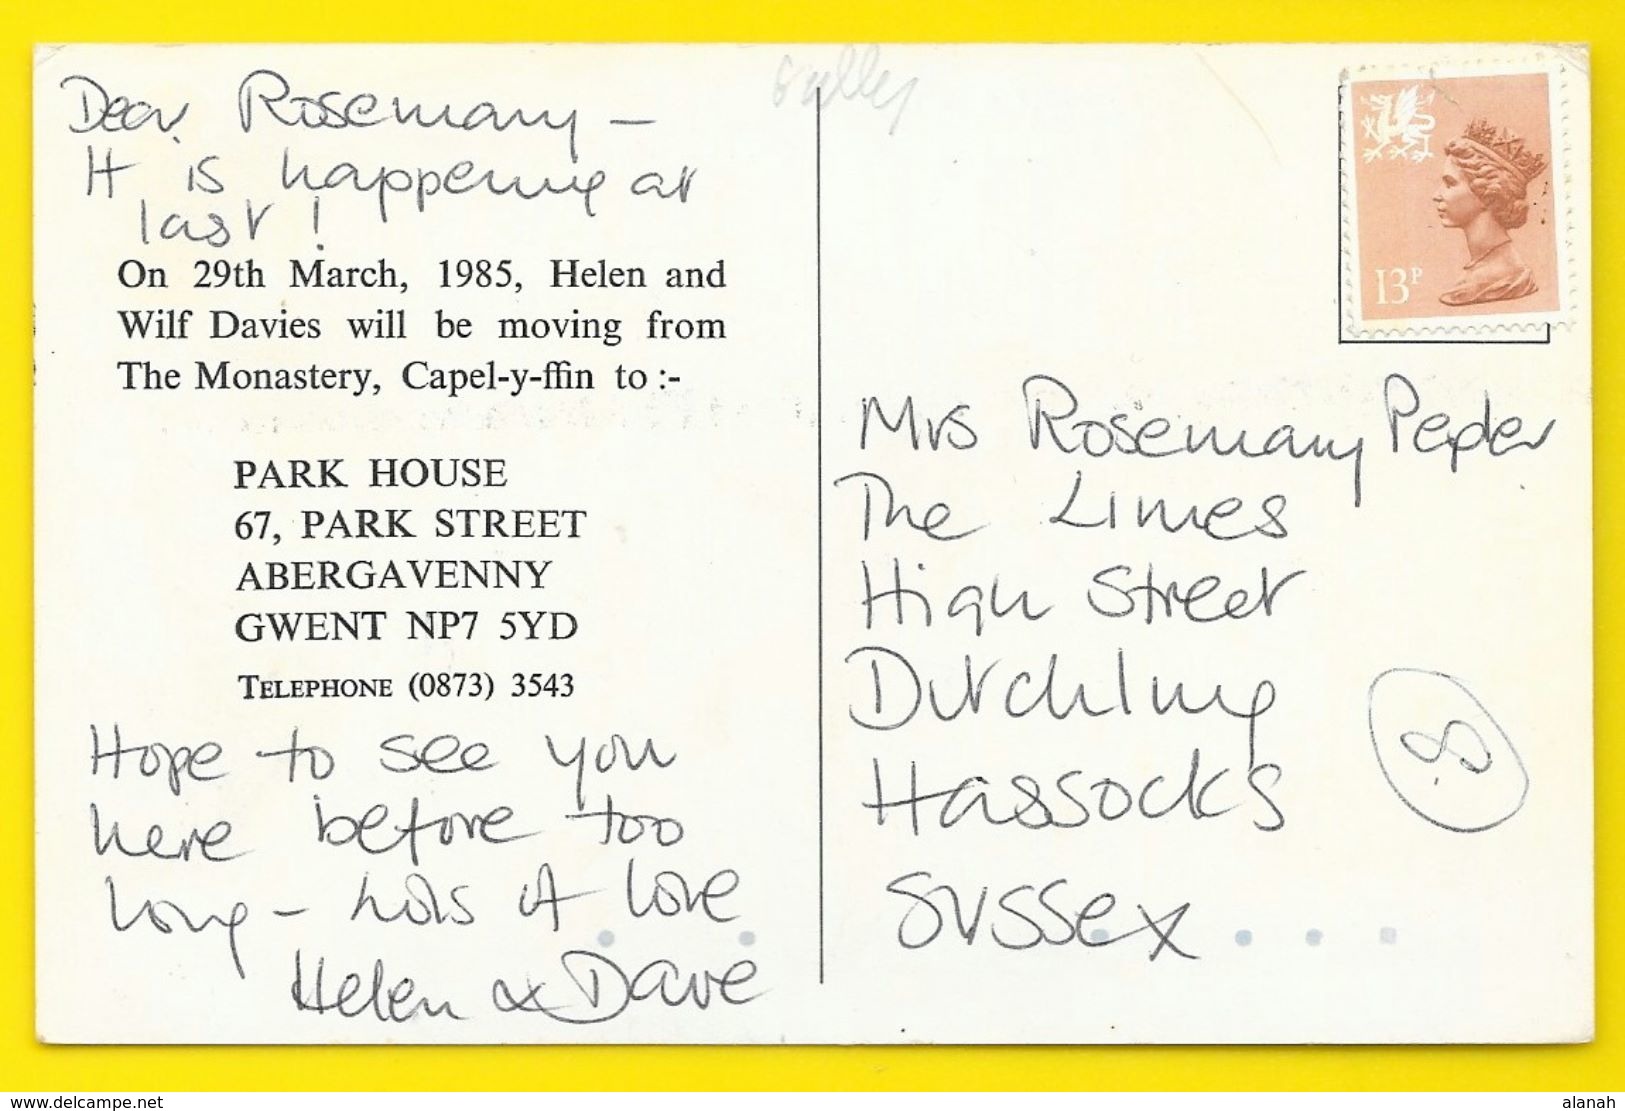 Dear Rosemary —
It is happening at
last!
On 29th March, 1985, Helen and
Wilf Davies will be moving from
The Monastery, Capel-y-ffin to :-
PARK HOUSE
67, PARK STREET
ABERGAVENNY
GWENT NP7 5YD
TELEPHONE (0873) 3543
Hope to see you
here before too
long - lots of love
Helen & Dave
13P
Mrs Rosemary
The Limes
High Street
Ditchling
Hassocks
Sussex
8
www.delcampe.net
alanah